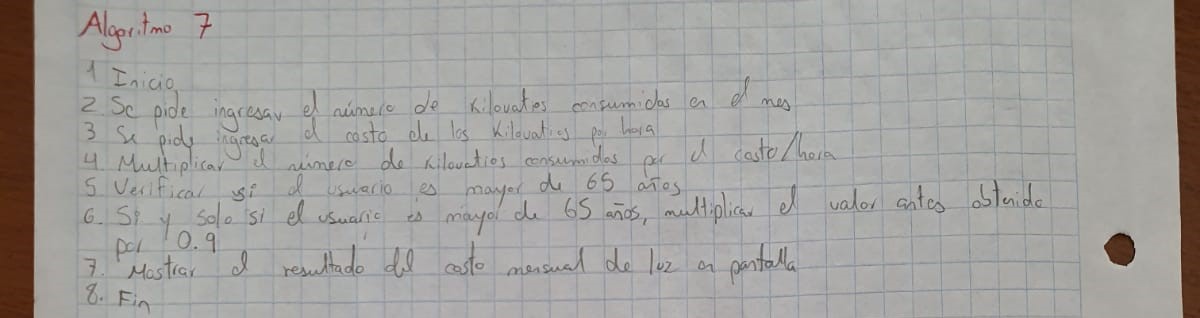 Algoritmo 7
1 Inicio
2. Se pide ingresar el número de Kilovatios consumidos en el mes
3 Se pide ingresar el costo de los Kilovatios por hora
4. Multiplicar el número de Kilovatios consumidos por el costo/hora
5 Verificar si el usuario es mayor de 65 años
6. Si y solo si el usuario es mayor de 65 años, multiplicar el valor antes obtenido
por 0.9
7. Mostrar el resultado del costo mensual de luz en pantalla
8. Fin